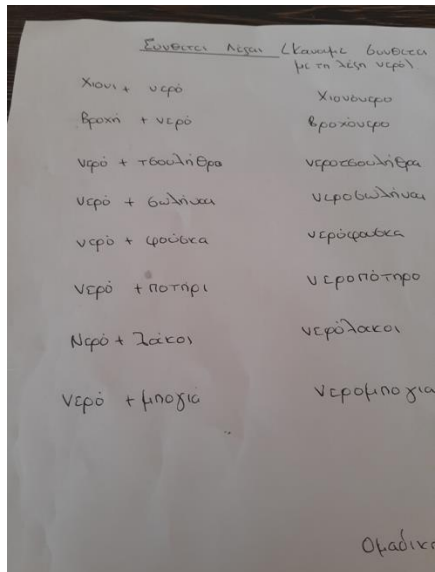 Συνθετει λεξαι (Καναμε συνθετει
με τη λέξη νερό)
Χιονι + νερό Χιονονερο
Βροχή + νερό Βροχόνερο
νερό + τσουλήθρα νεροτσουλήθρα
νερό + σωλήναι νεροσωλήναι
νερό + φούσκα νερόφουσκα
νερό + ποτήρι νεροπότηρο
Νερό + λάκοι νερόλακοι
νερό + μπογιά νερομπογια
Ομαδικ